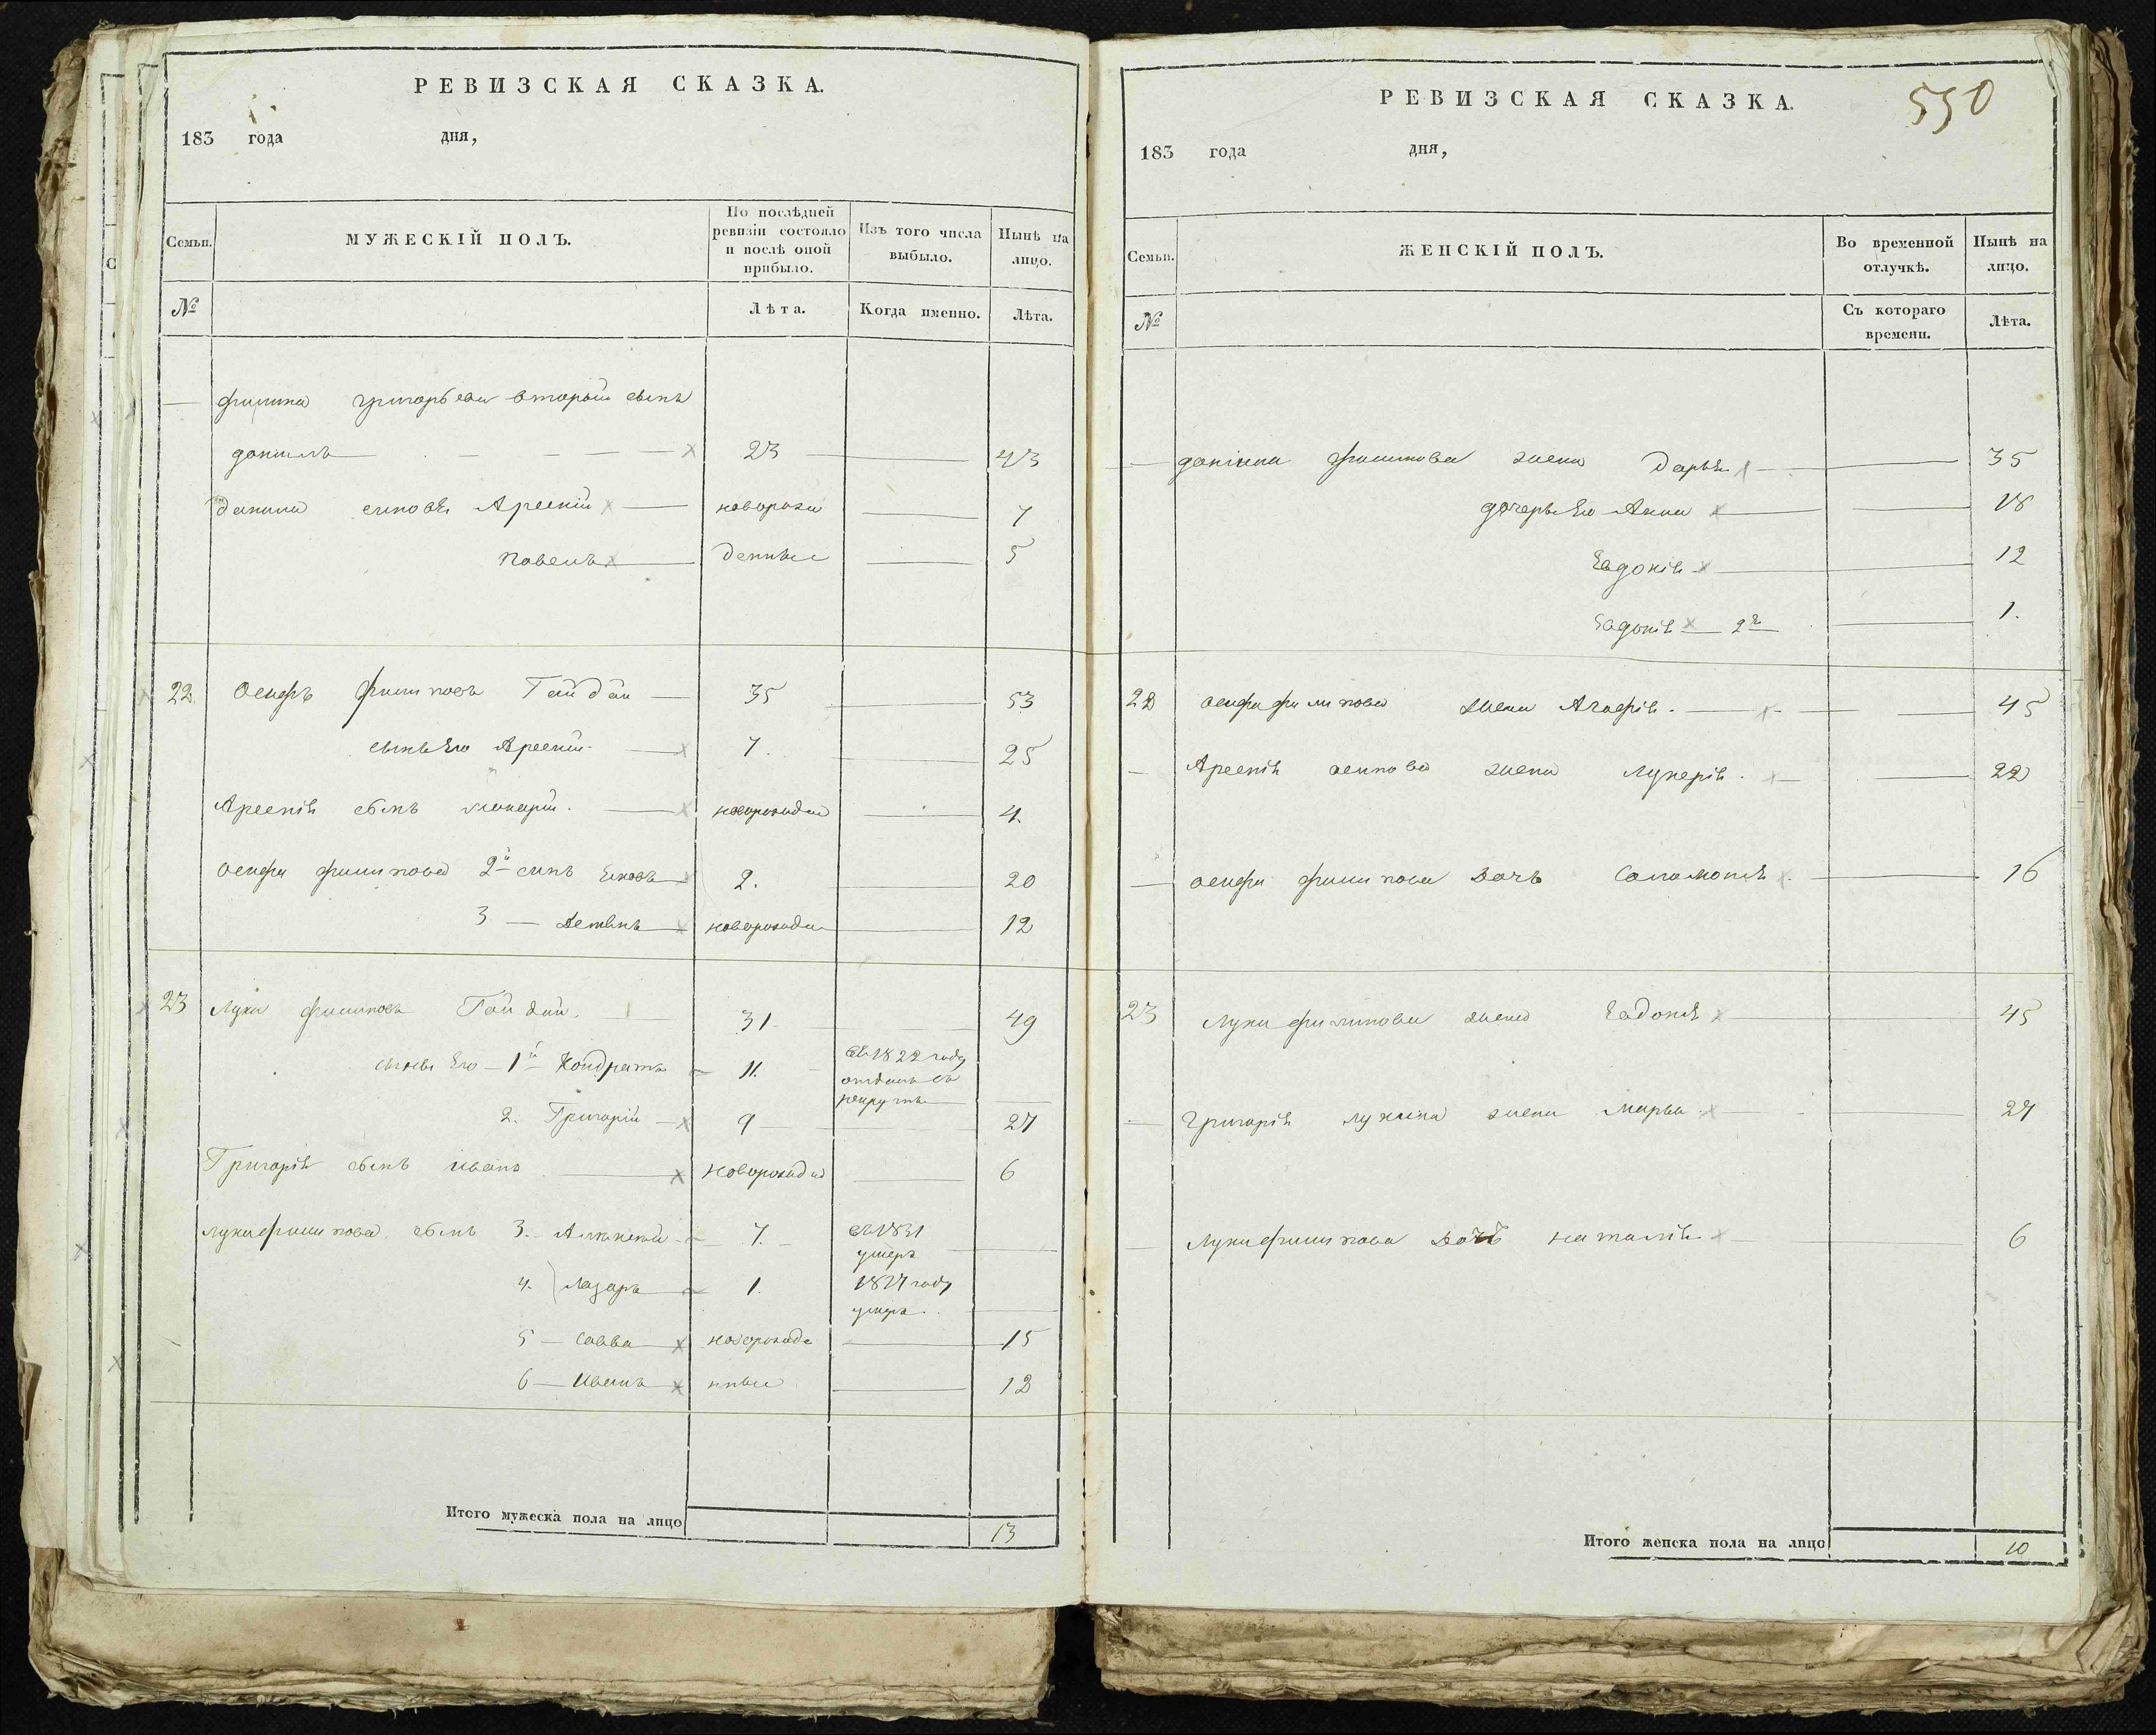 РЕВИЗСКАЯ СКАЗКА.
183 года дня,
Семьи. МУЖЕСКІЙ ПОЛЪ. По послѣдней ревизіи состояло и послѣ оной прибыло. Изъ того числа выбыло. Нынѣ на лицо.
№ Лѣта. Когда именно. Лѣта.
— Филипа Григорьева второй сынъ
Данилъ 23 — 43
Данила сыновья Арсеній новорожде — 7
Павелъ денные — 5
22 Осифъ Филиповъ Гайдай 35 — 53
сынъ Его Арсеній 7. — 25
Арсенія сынъ новорожден — 4.
Осифа Филипова 2й сынъ Яковъ 2. — 20
3 — новорожден — 12
23 Лука Филиповъ Гайдай. 31 — 49
сыновья Его — 1й Кондратъ 11. въ 1822 году
отданъ въ
рекруты
2. Григорій 9 — 27
Григорія сынъ Иванъ новорожден — 6
Луки Филипова сынъ 3. Алексей 7. въ 1831
умеръ
4. Лазарь 1. 1827 году
умеръ
5 — Савва новорожде — 15
6 — Иванъ нные — 12
Итого мужеска пола на лицо 13
550
РЕВИЗСКАЯ СКАЗКА.
183 года дня,
Семьи. ЖЕНСКІЙ ПОЛЪ. Во временной отлучкѣ. Нынѣ на лицо.
№ Съ котораго времени. Лѣта.
— Данила Филипова жена Дарья — 35
дочеръ Его Анна — 18
Евдокія — 12
Евдокія 2я — 1.
22 Осифа Филипова жена Агафія. — 45
— Арсенія Осипова жена Лукерія. — 22
— Осифа Филипова дочь Соломонія — 16
23 Луки Филипова жена Евдокія — 45
— Григорія Лукина жена Марья — 27
— Луки Филипова дочь Наталія — 6
Итого женска пола на лицо 10